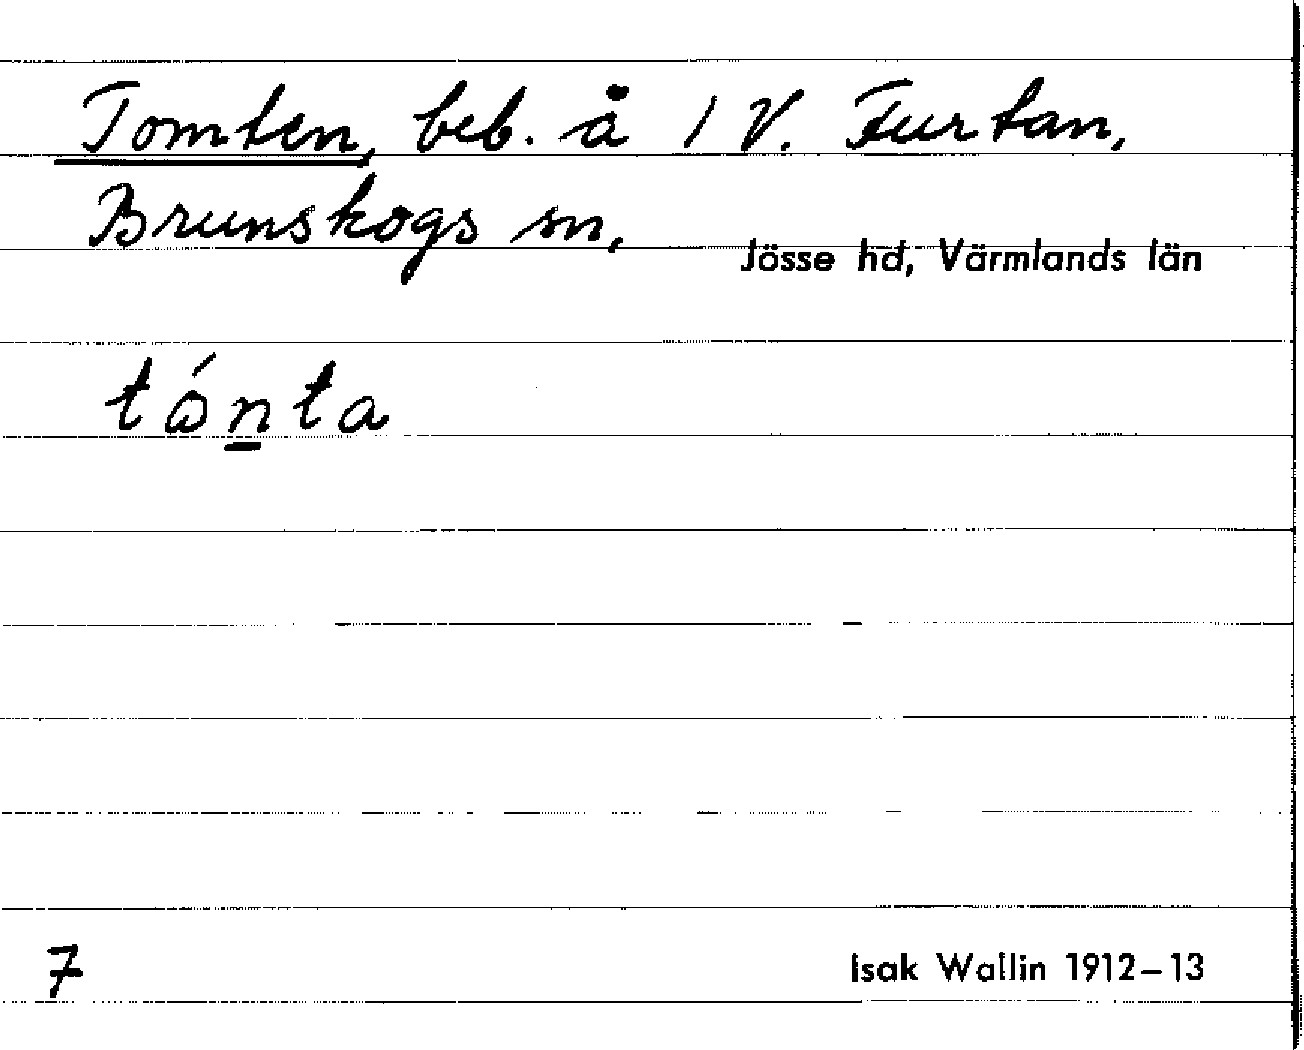 Tomten, beb. å 1 V. Furtan,
Brunskogs sn,
Jösse hd, Värmlands län
tɷ́n̲ta
7
Isak Wallin 1912–13